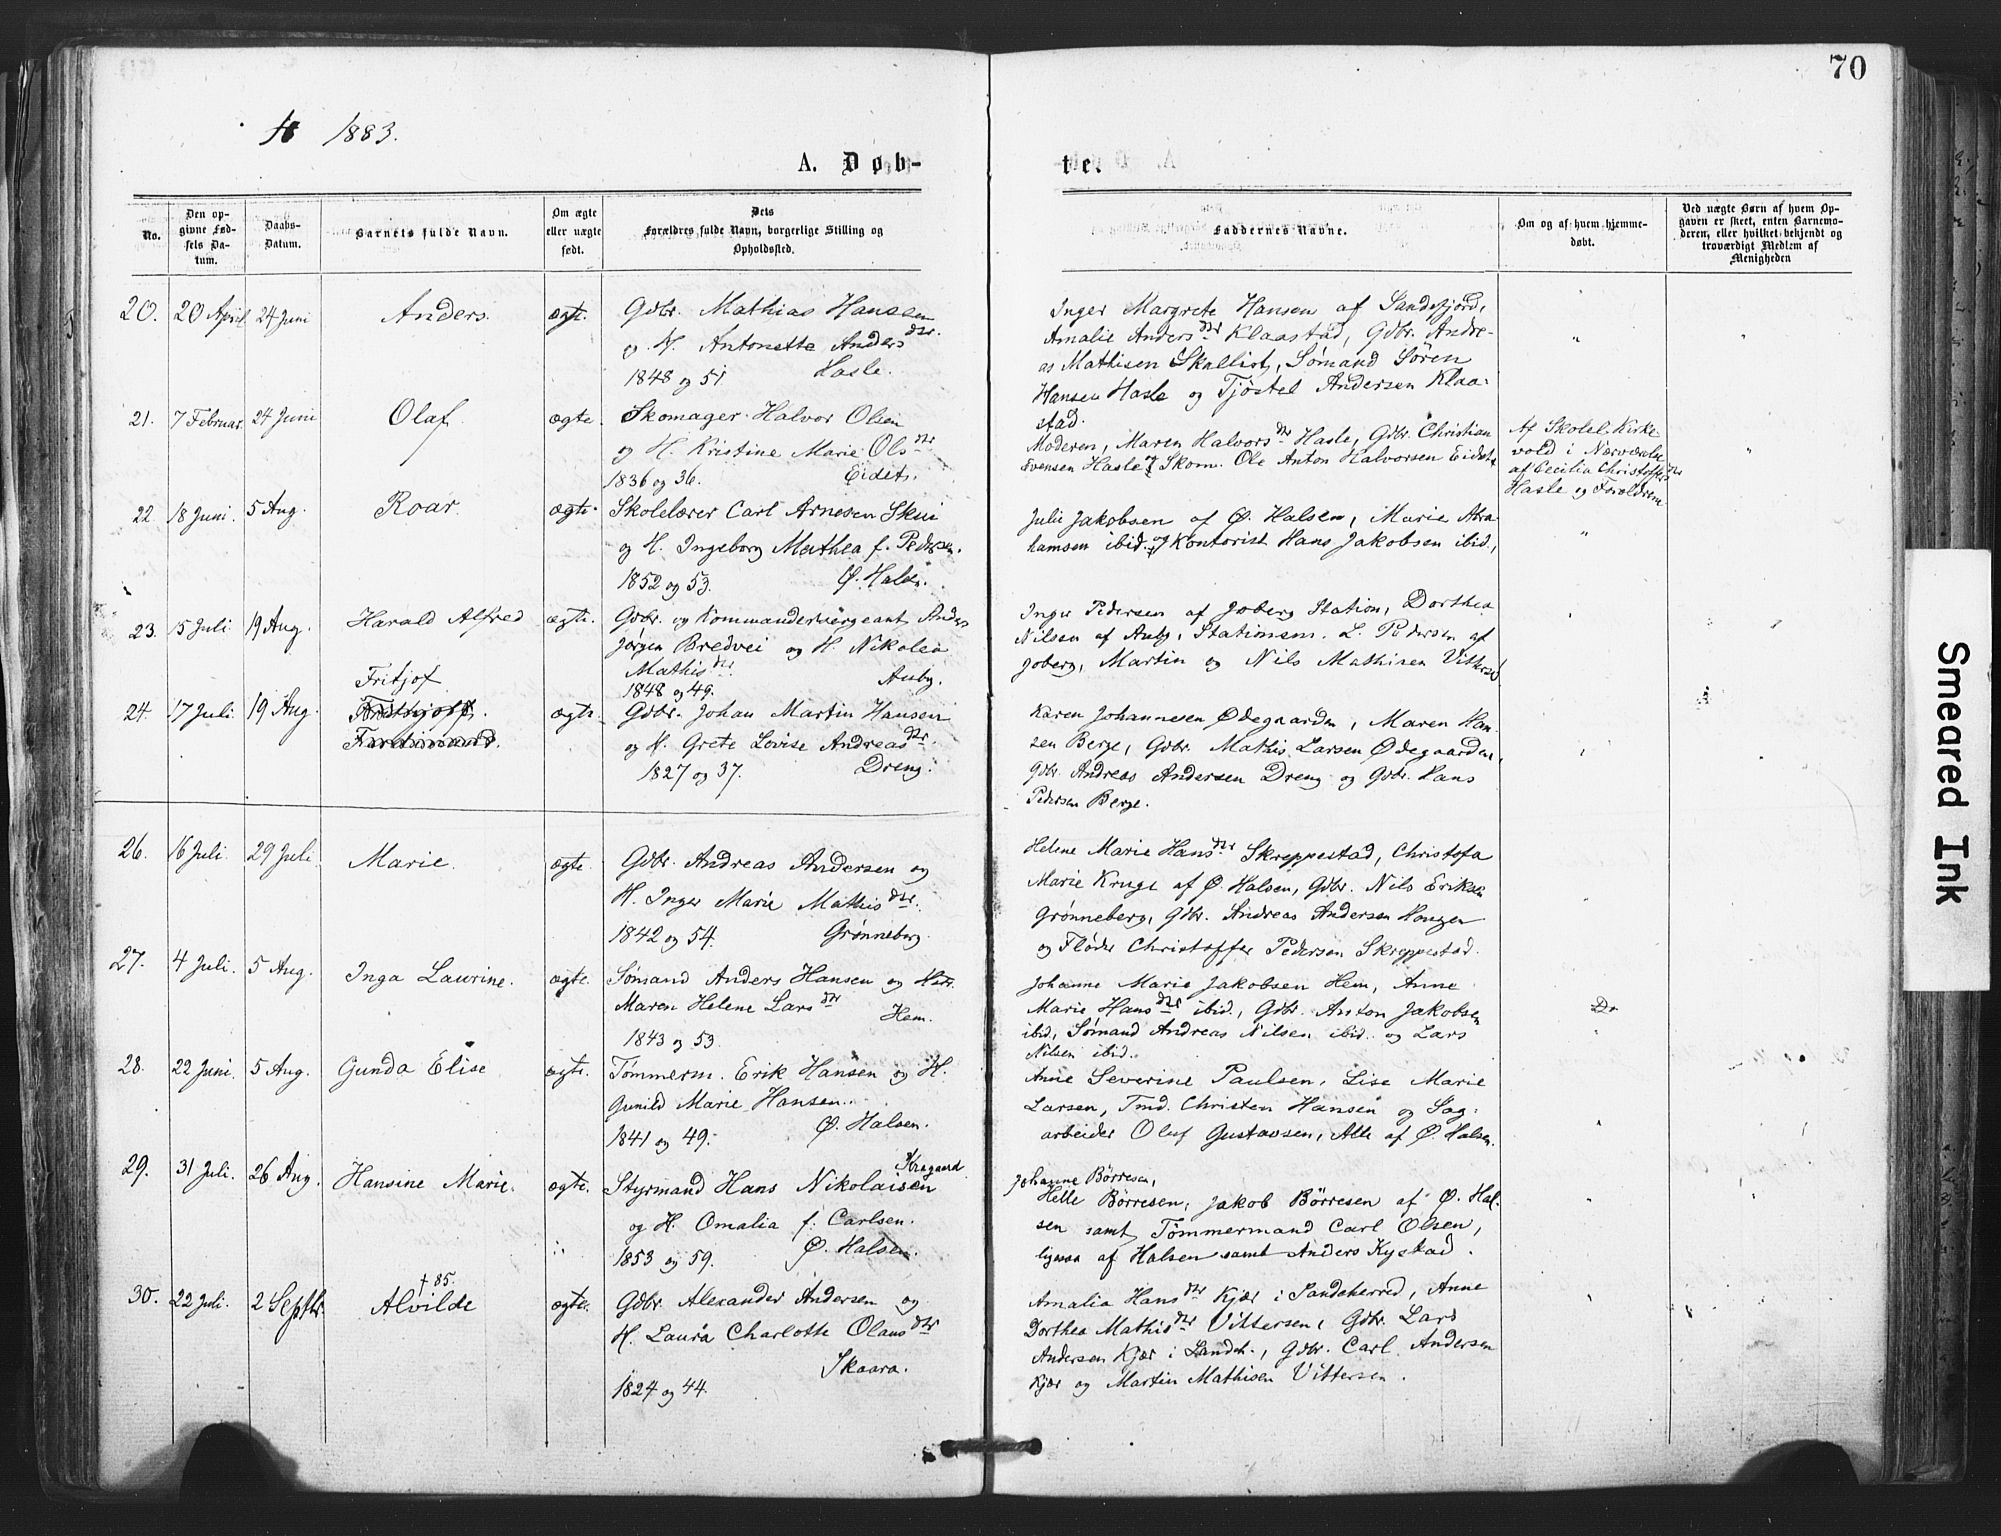 70
1883.
A. Døb-
te.
No.
Den op-
givne Fød-
sels Da-
tum.
Daabs-
Datum.
Barnets fulde Navn.
Om ægte
eller uægte
født.
Dets
Forældres fulde Navn, borgerlige Stilling og
Opholdssted.
Faddernes Navne.
Om og af hvem hjemme-
døbt.
Ved uægte Børn af hvem Op-
gaven er skeet, enten Barnemo-
deren, eller hvilket bekjendt og
troværdigt Medlem af
Menigheden
20. 20 April 24 Juni Anders. ægte. Gdbr. Mathias Hansen
og H. Antonette Andersdtr.
1848 og 51 Hasle.
Inger Margrete Hansen af Sandefjord,
Amalie Andersdtr Klaastad, Gdbr. Andre-
as Mathisen Skallist, Sømand Sören
Hansen Hasle og Tjøstel Andersen Klaa-
stad.
21. 7 Februar. 24 Juni Olaf. ægte. Skomager Halvor Olsen
og H. Kristine Marie Olsdtr
1836 og 36. Eidet.
Moderen, Maren Halvorsdtr Hasle, Gdbr. Christian
Evensen Hasle og Skom. Ole Anton Halvorsen Eidet.
Af Skolel. Kirke-
vold i Nærværelse
af Cecilia Christoffersdtr
Hasle og Forældrene
22. 18 Juni. 5 Aug. Roar. ægte. Skolelærer Carl Arnesen Skui
og H. Ingeborg Mathea f. Pedersen.
1852 og 53. Ø. Halsen.
Julie Jakobsen af Ø. Halsen, Marie Abra-
hamsen ibid. og Kontorist Hans Jakobsen ibid.
23. 15 Juli 19 Aug. Harald Alfred ægte. Gdbr. og Kommandersergeant Anders
Jørgen Bredvei og H. Nikolea
Mathisdtr. Auby.
1848 og 49.
Inger Pedersen af Joberg Station, Dorthea
Nilsen af Auby, Stationsm. L. Pedersen af
Joberg, Martin og Nils Mathisen Vittersø
Fritjof
24. 17 Juli. 19 Aug. Ferdinand. ægte. Gdbr. Johan Martin Hansen
og H. Grete Lovise Andreasdtr.
1827 og 37. Dreng.
Karen Johannesen Ødegaarden, Maren Han-
sen Berge, Gdbr. Mathis Larsen Ødegaarden,
Gdbr. Andreas Andersen Dreng og Gdbr. Hans
Pedersen Berge.
26. 16 Juli. 29 Juli Marie. ægte. Gdbr. Andreas Andersen og
H. Inger Marie Mathisdtr.
1842 og 54. Grønneberg.
Helene Marie Hansdtr Skreppestad, Christofa
Marie Kruge af Ø. Halsen, Gdbr. Nils Eriksen
Grønneberg, Gdbr. Andreas Andersen Haugen
og Fløder Christoffer Pedersen Skreppestad.
27. 4 Juli. 5 Aug. Inga Laurine. ægte. Sømand Anders Hansen og Hstr.
Maren Helene Larsdtr Hem.
1843 og 53.
Johanne Marie Jakobsen Hem, Anne
Marie Hansdtr ibid., Gdbr. Anton Jakobsen
ibid, Sømand Andreas Nilsen ibid. og Lars
Nilsen ibid.
28. 22 Juni. 5 Aug. Gunda Elise ægte. Tømmerm. Erik Hansen og H.
Gunild Marie Hansen.
1841 og 49. Ø. Halsen.
Anne Severine Paulsen, Lise Marie
Larsen, Tmd. Christen Hansen og Sag-
arbeider Oluf Gustavsen, Alle af Ø. Halsen.
29. 31 Juli. 26 Aug. Hansine Marie. ægte. Styrmand Hans Nikolaisen Kragaard
og H. Omalia f. Carlsen.
1853 og 59. Ø. Halsen.
Johanne Börresen,
Helle Börresen, Jakob Börresen af Ø. Hal-
sen samt Tömmermand Carl Olsen,
ligesaa af Halsen samt Anders Kystad.
† 85.
30. 22 Juli. 2 Septbr. Alvilde ægte. Gdbr. Alexander Andersen og
H. Laura Charlotte Olausdtr
Skaara.
1824 og 44.
Amalia Hansdtr Kjær i Sandeherred, Anne
Dorthea Mathisdtr Vittersen, Gdbr. Lars
Andersen Kjær i Sandeh., Gdbr. Carl Andersen
Kjær og Martin Mathisen Vittersen.
Smeared Ink